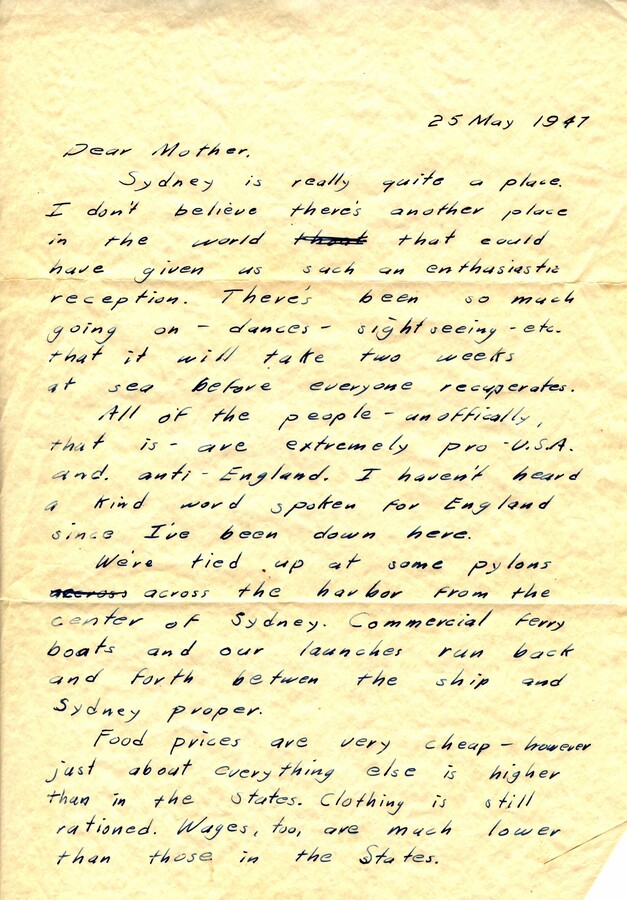 25 May 1947
Dear Mother,
Sydney is really quite a place.
I don't believe there's another place
in the world that could
have given us such an enthusiastic
reception. There's been so much
going on - dances - sightseeing - etc.
that it will take two weeks
at sea before everyone recuperates.
All of the people - unoffically,
that is - are extremely pro-U.S.A.
and. anti-England. I haven't heard
a kind word spoken for England
since I've been down here.
We're tied up at some pylons
accross across the harbor from the
center of Sydney. Commercial ferry
boats and our launches run back
and forth betwen the ship and
Sydney proper.
Food prices are very cheap - however
just about everything else is higher
than in the States. Clothing is still
rationed. Wages, too, are much lower
than those in the States.